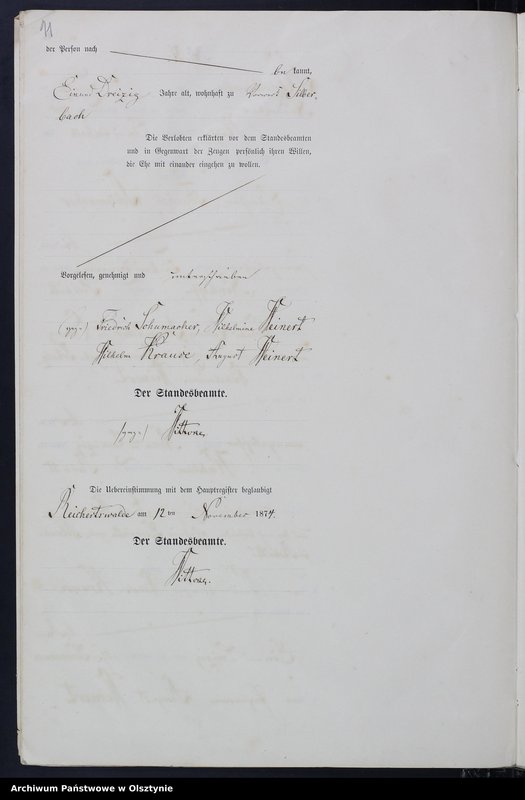 11
der Person nach
be kannt,
Einund Dreizig Jahre alt, wohnhaft zu Vorwerk Silber-
bach
Die Verlobten erklärten vor dem Standesbeamten
und in Gegenwart der Zeugen persönlich ihren Willen,
die Ehe mit einander eingehen zu wollen.
Vorgelesen, genehmigt und unterschrieben
(gez.) Friedrich Schumacher, Wilhelmine Weinert
Wilhelm Krause, August Weinert
Der Standesbeamte.
(gez.)
Die Uebereinstimmung mit dem Hauptregister beglaubigt
Reichertswalde am 12 ten November 1874.
Der Standesbeamte.
Archiwum Państwowe w Olsztynie